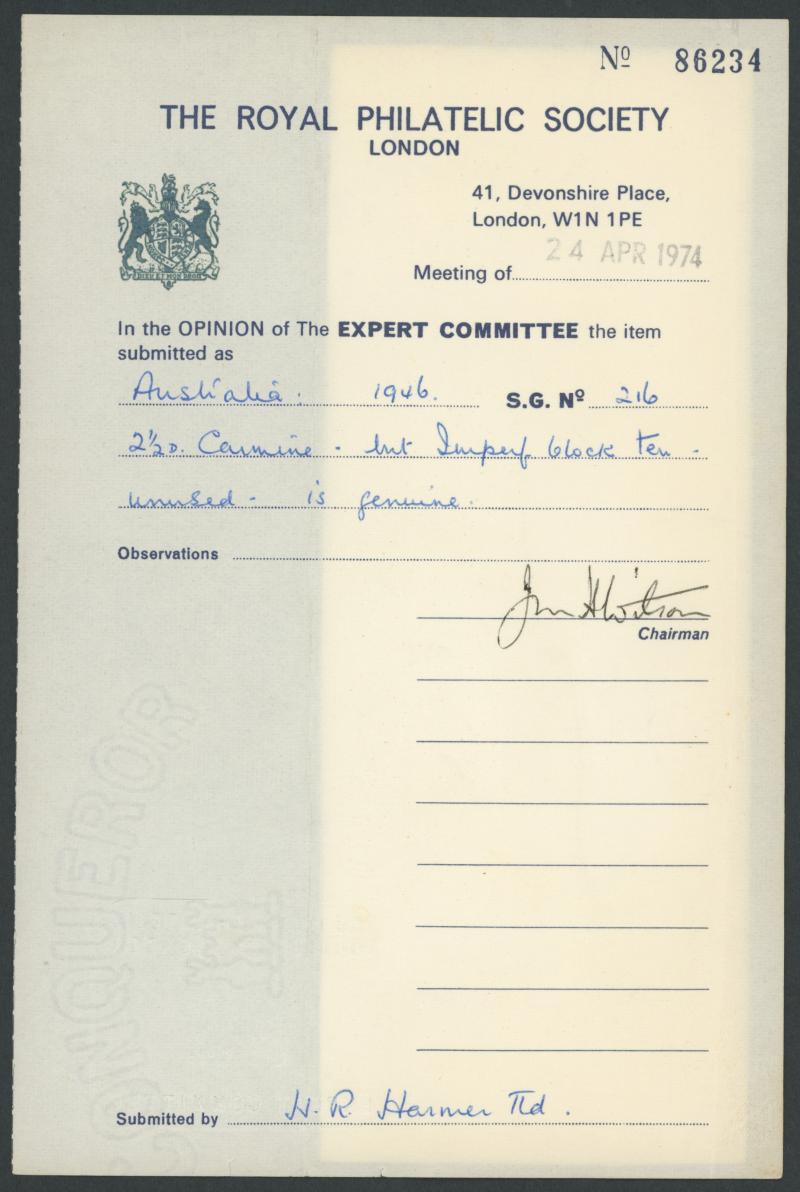 Nº 86234
THE ROYAL PHILATELIC SOCIETY
LONDON
41, Devonshire Place,
London, W1N 1PE
Meeting of 24 APR 1974
DIEU ET MON DROIT
In the OPINION of The EXPERT COMMITTEE the item
submitted as
Australia. 1946. S.G. Nº 216
2½D. Carmine - but Imperf block ten -
unused - is genuine.
Observations
Chairman
CONQUEROR
Submitted by H. R. Harmer Ltd.